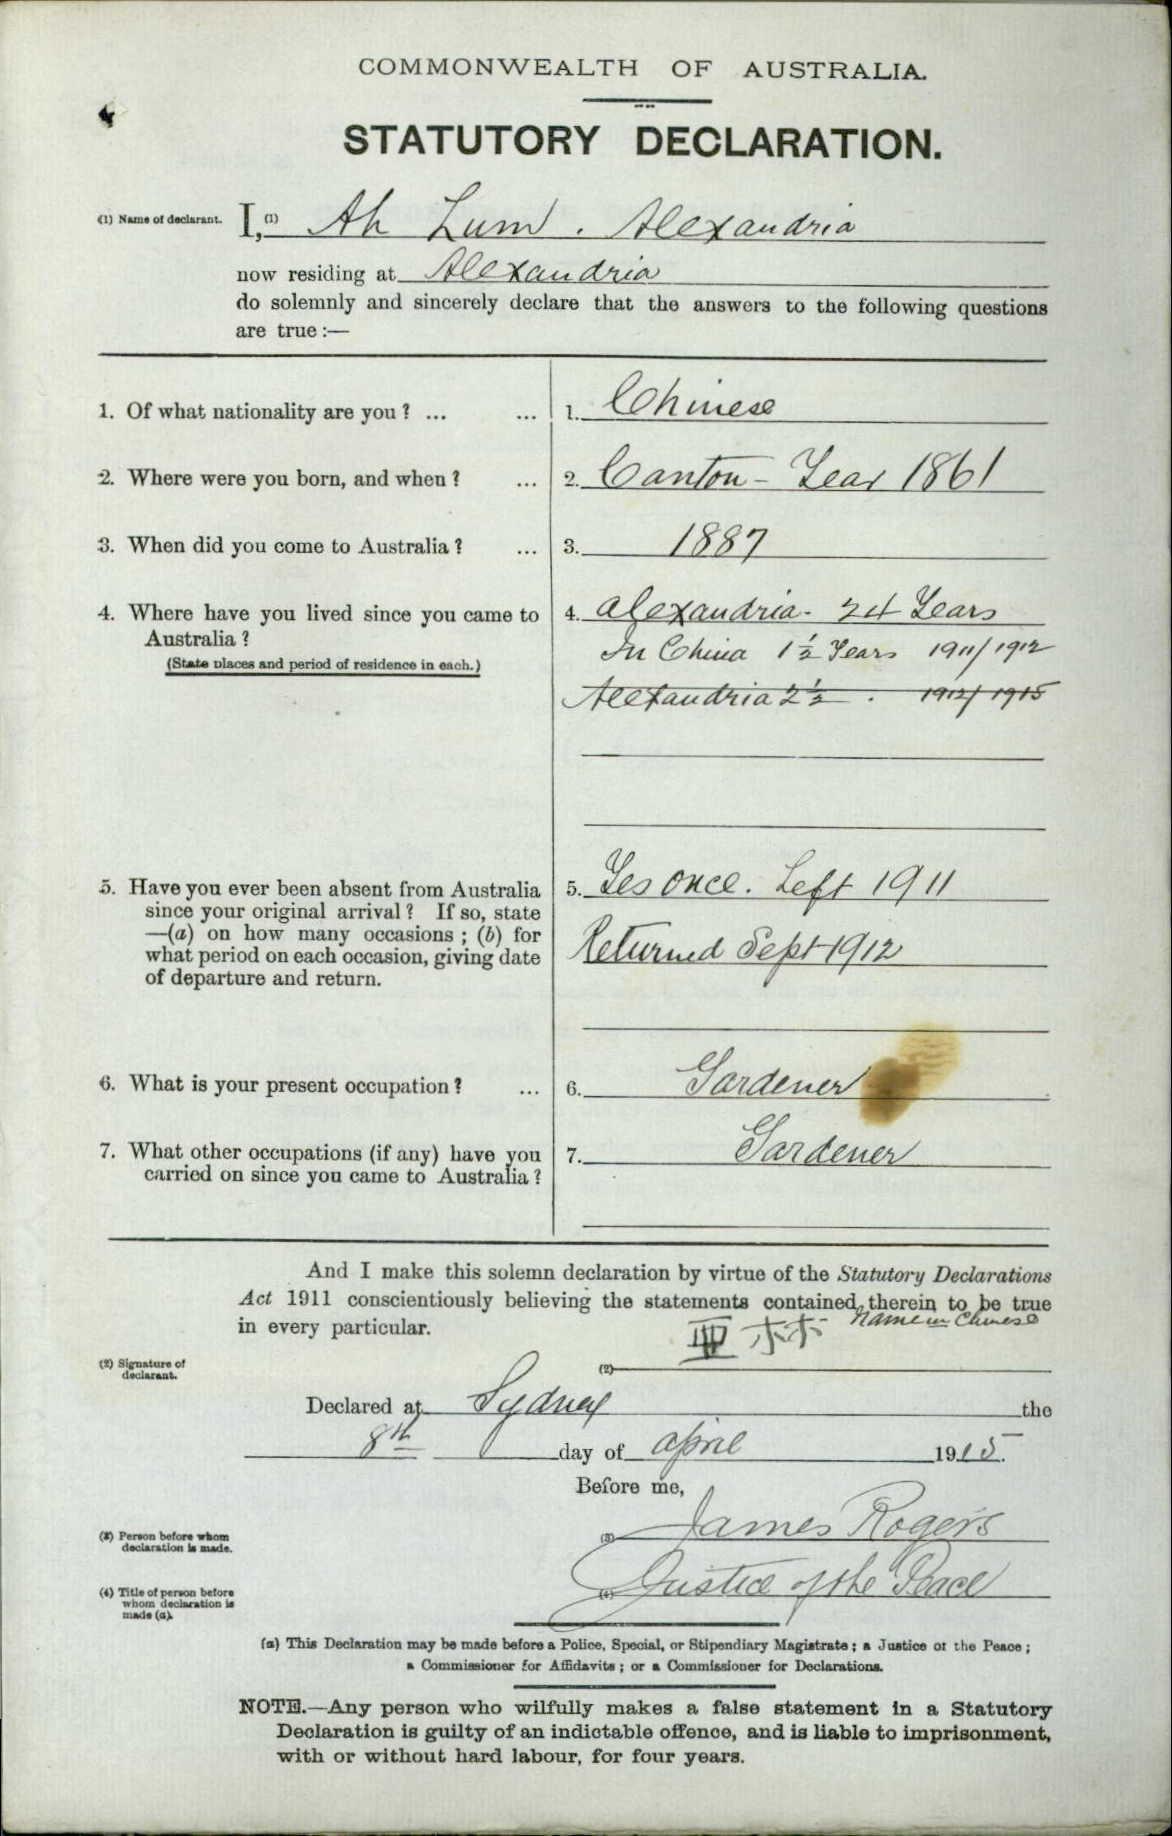 COMMONWEALTH OF AUSTRALIA.
STATUTORY DECLARATION.
(1) Name of declarant. I, (1) Ah Lum. Alexandria
now residing at Alexandria
do solemnly and sincerely declare that the answers to the following questions
are true :—
1. Of what nationality are you ? ... ... 1. Chinese
2. Where were you born, and when ? ... 2. Canton - Year 1861
3. When did you come to Australia ? ... 3. 1887
4. Where have you lived since you came to 4. Alexandria - 24 Years
Australia ? In China 1½ Years 1911/1912
(State places and period of residence in each.)
Alexandria 2½ . 1912/1915
5. Have you ever been absent from Australia 5. Yes once. Left 1911
since your original arrival ? If so, state
—(a) on how many occasions ; (b) for Returned Sept 1912
what period on each occasion, giving date
of departure and return.
6. What is your present occupation ? ... 6. Gardener
7. What other occupations (if any) have you 7. Gardener
carried on since you came to Australia ?
And I make this solemn declaration by virtue of the Statutory Declarations
Act 1911 conscientiously believing the statements contained therein to be true
in every particular. 亜林 Name in Chinese
(2) Signature of (2)
declarant.
Declared at Sydney the
8th day of April 1915.
Before me,
(3) Person before whom (3) James Rogers
declaration is made.
(4) Title of person before (4) Justice of the Peace
whom declaration is
made (a).
(a) This Declaration may be made before a Police, Special, or Stipendiary Magistrate ; a Justice of the Peace ;
a Commissioner for Affidavits ; or a Commissioner for Declarations.
NOTE.—Any person who wilfully makes a false statement in a Statutory
Declaration is guilty of an indictable offence, and is liable to imprisonment,
with or without hard labour, for four years.